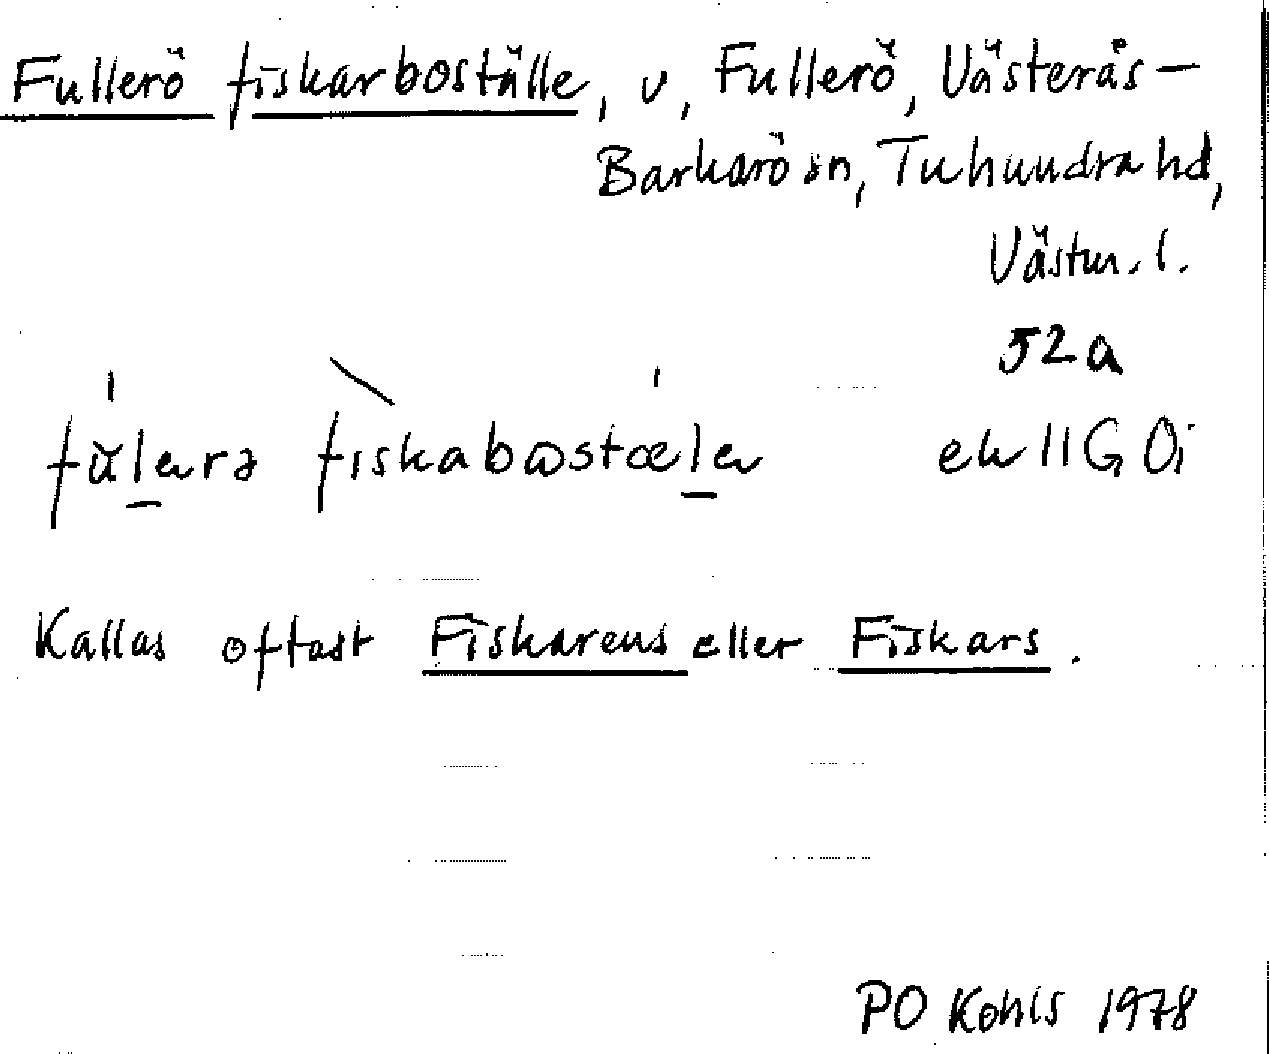 Fullerö fiskarboställe, v, Fullerö, Västerås-
Barkarö sn, Tuhundra hd,
Västm. l.
52a
fiskabostæle
Kallas oftast Fiskarens eller Fiskars.
PO Kohls 1978